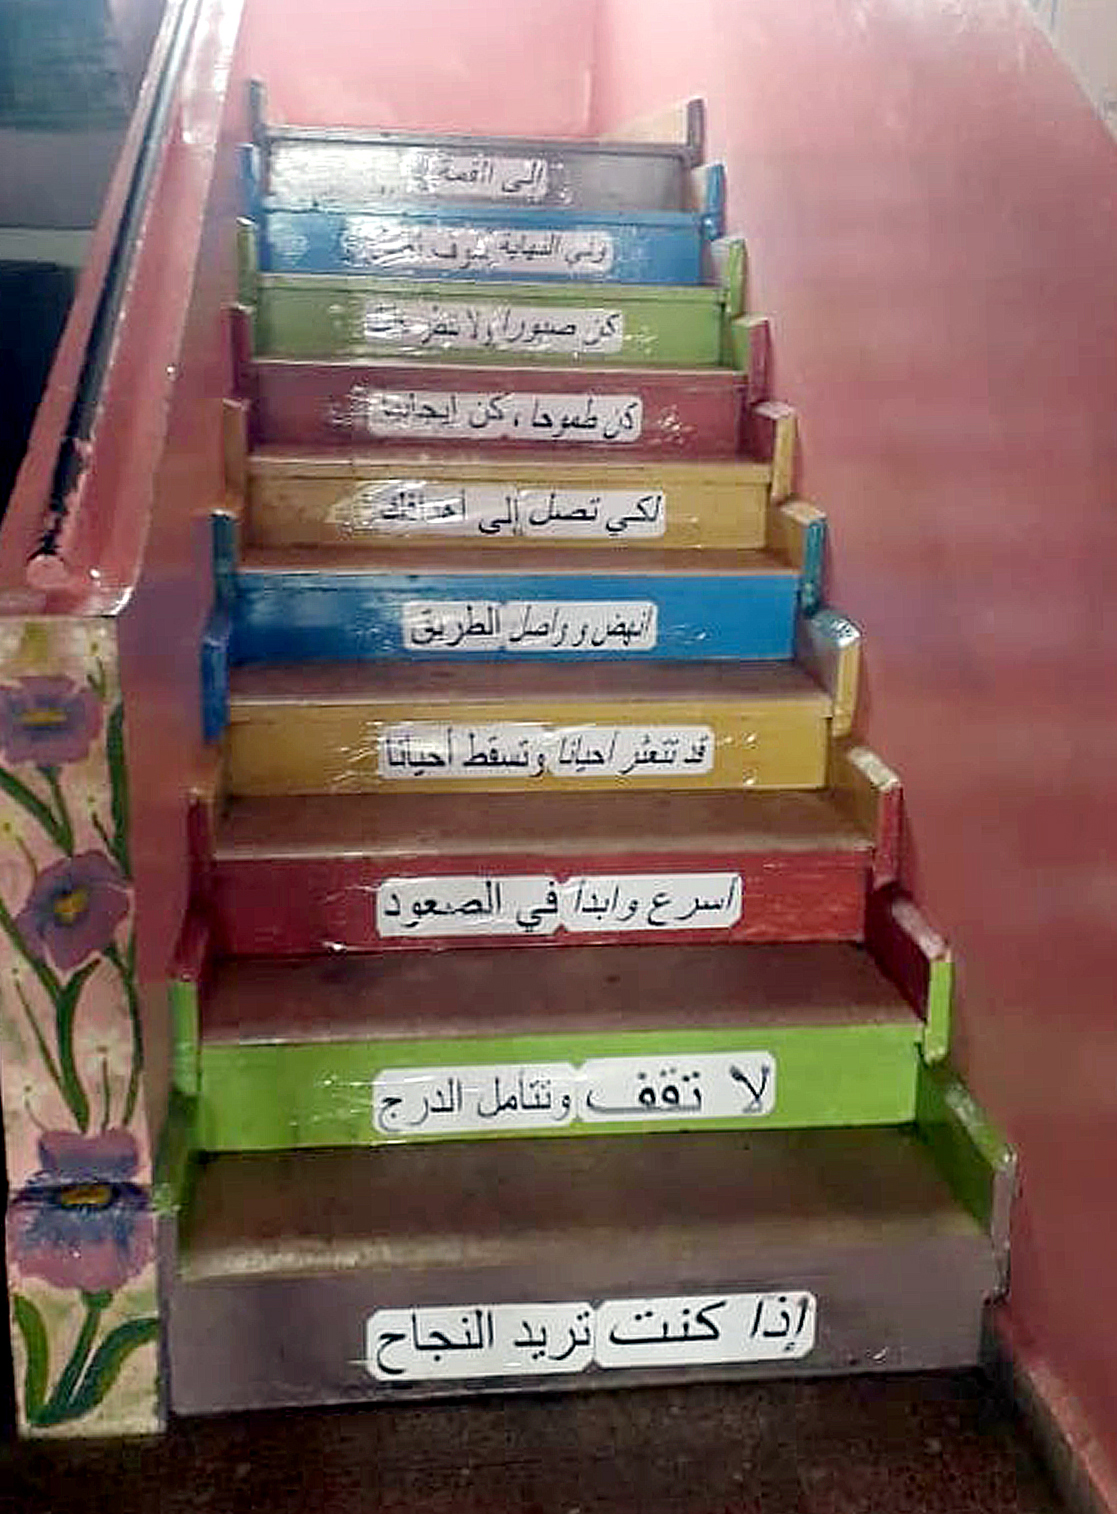 إلى القمة
وفي النهاية سوف
كن صبورا ولا
كن طموحا ، كن إيجابيا
لكي تصل إلى أهدافك
انهض وواصل الطريق
قد تتعثر أحيانا وتسقط أحيانا
أسرع وابدأ في الصعود
لا تقف وتتأمل الدرج
إذا كنت تريد النجاح